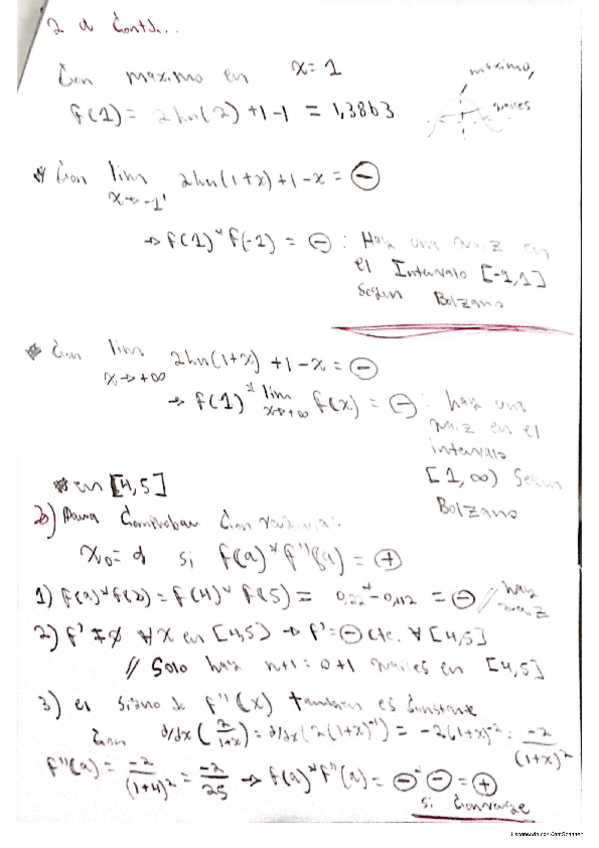 2 a Contd...
Con maximo en x=1
maximo,
raices
f(1) = 2ln(2)+1-1 = 1,3863
* Con lim 2ln(1+x)+1-x = ⊖
x→-1⁺
→ f(1)*f(-1) = ⊖ : Hay una raiz en
el Intervalo [-1,1]
Segun Bolzano
* Con lim 2ln(1+x)+1-x = ⊖
x→+∞
→ f(1)* lim f(x) = ⊖ : hay una
x→+∞
raiz en el
intervalo
[1,∞) Segun
Bolzano
* en [4,5]
b) Para Comprobar Convergencia:
x₀= a si f(a)*f''(a) = ⊕
1) f(a)*f(b) = f(4)*f(5) = 0,22*-0,42 = ⊖ // hay
raiz
2) f' ≠ 0 ∀x en [4,5] → f' = ⊖ cte. ∀ [4,5]
// Solo hay n+1 = 0+1 raices en [4,5]
3) el Signo de f''(x) tambien es Constante
Con d/dx(2/(1+x)) = d/dx(2(1+x)⁻¹) = -2(1+x)⁻² = -2/(1+x)²
f''(a) = -2/(1+4)² = -2/25 → f(a)*f''(a) = ⊖*⊖ = ⊕
si Converge
Escaneado con CamScanner